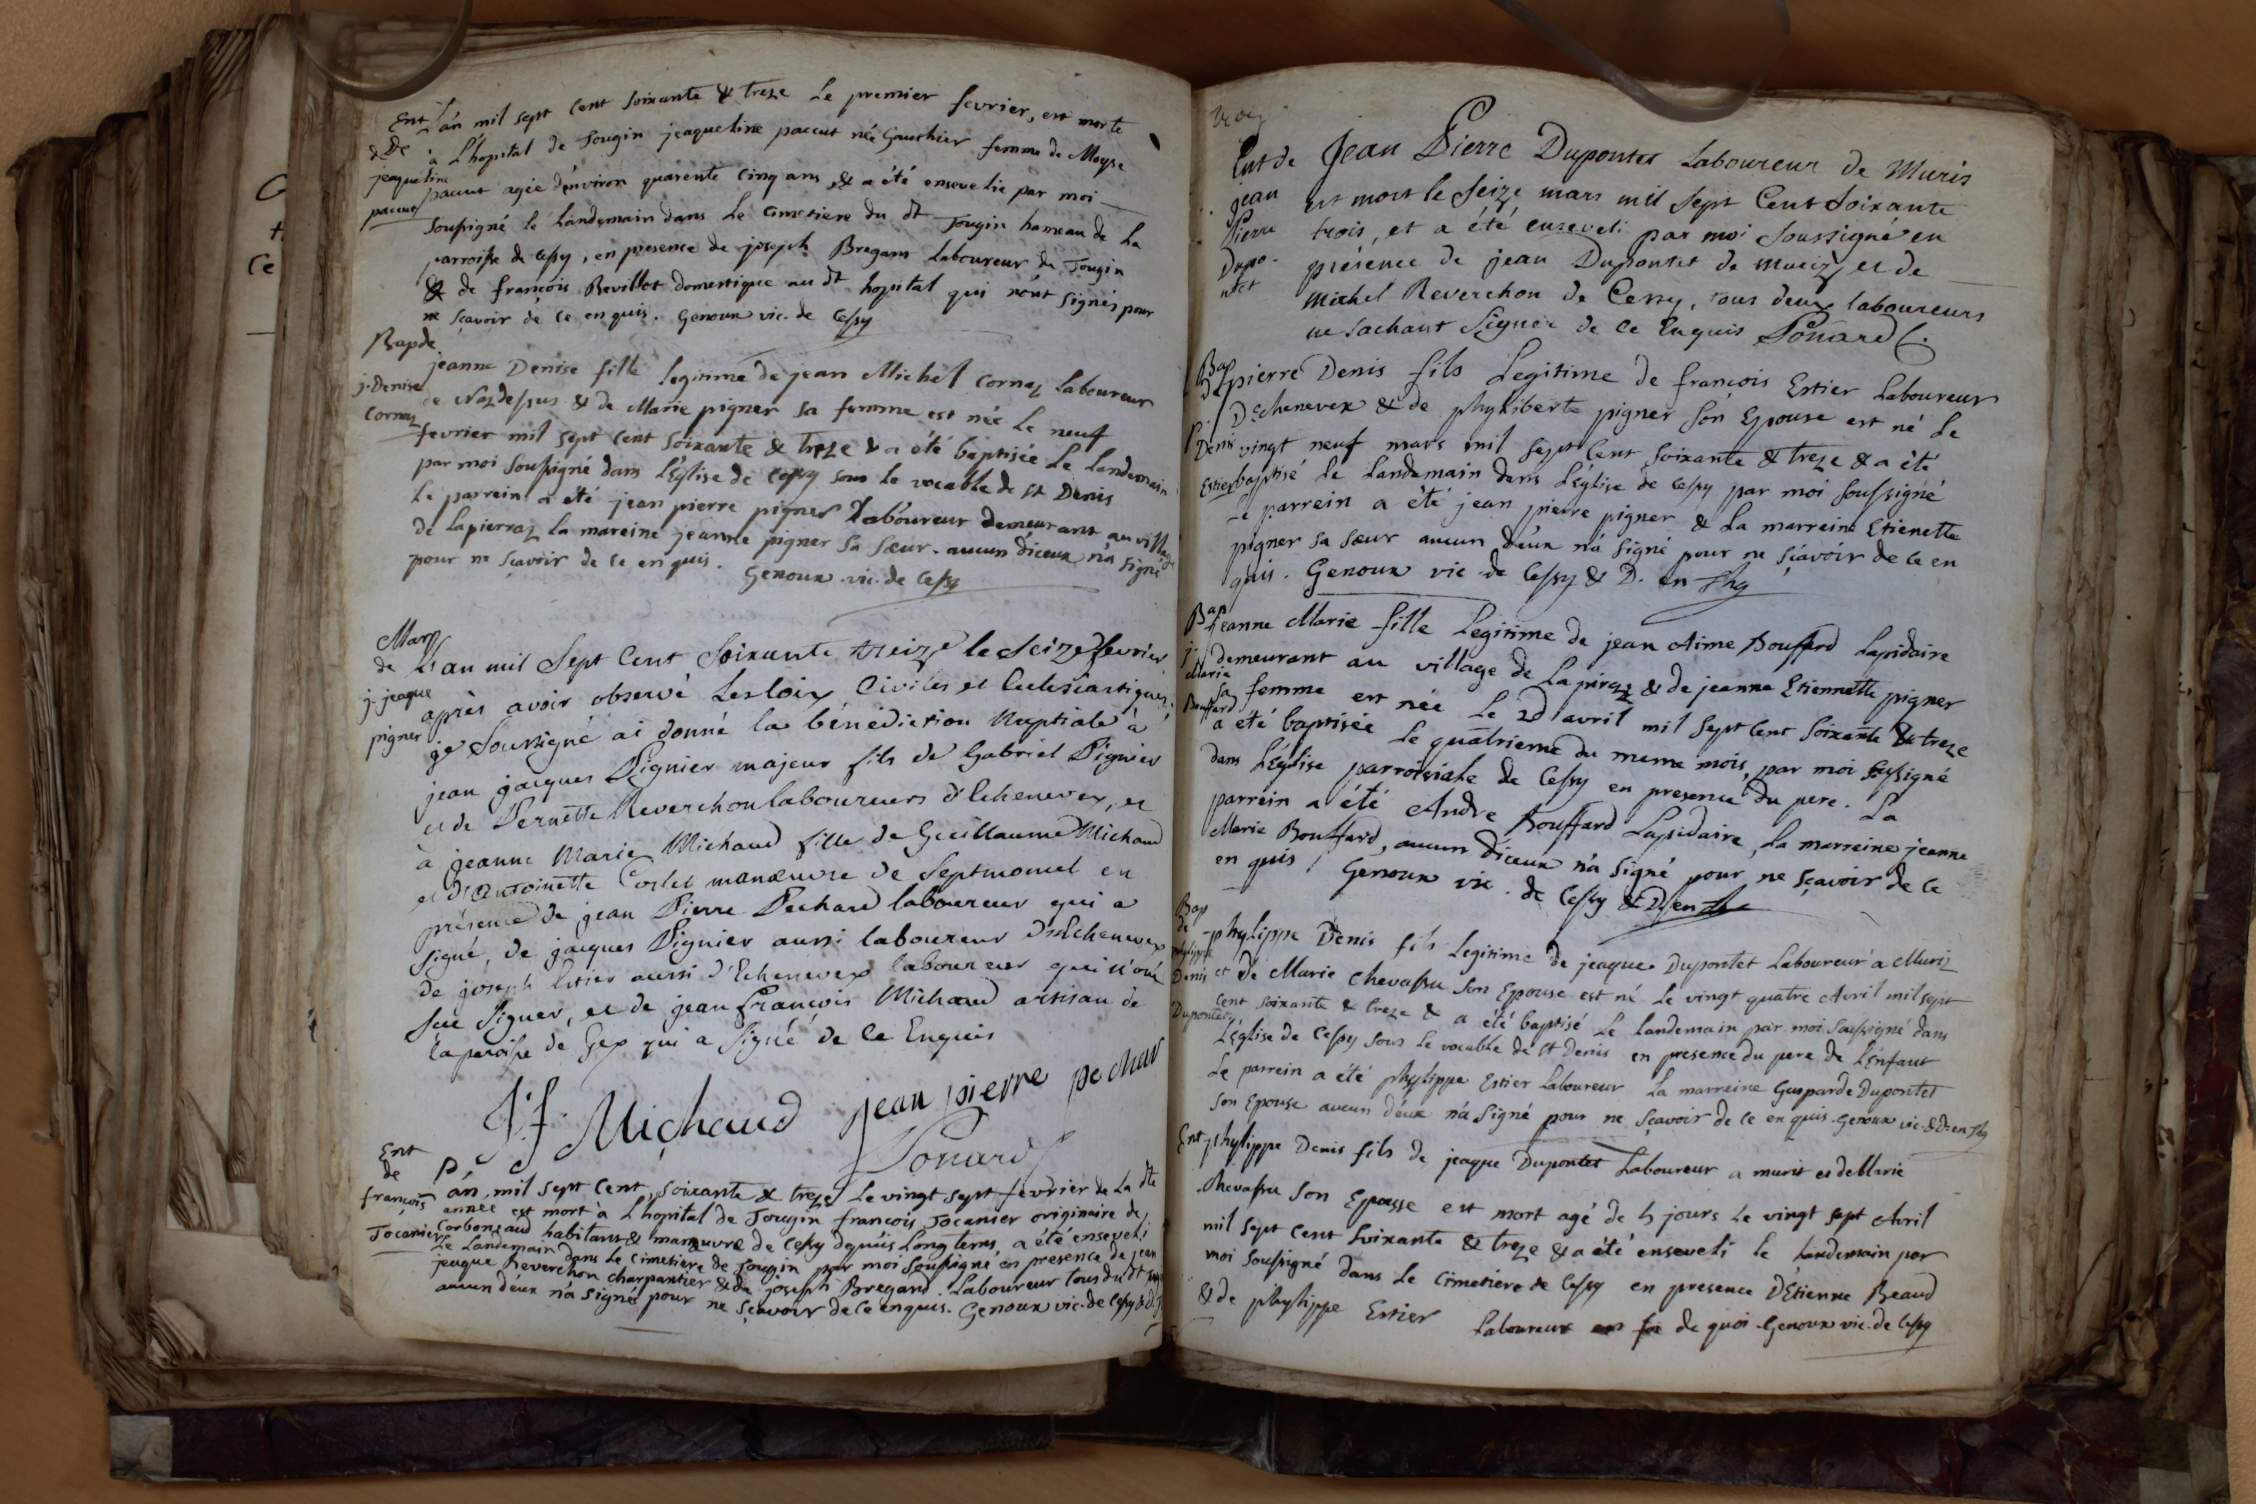 Ent L'an mil sept Cent Soixante & treze Le premier fevrier, est morte
& De à L'hopital de Tougin jeaqueline paccut né Gauthier femme de Moyse
jeaqueline paccut agée d'environ quarente Cinq ans, & a été ensevelie par moi
paccut Soussigné le landemain dans Le Cimetiere du dt Tougin hameau de La
parroisse de Cessy, en presence de joseph Bregam Laboureur de Tougin
& de francois Revillet domestique au dt hopital qui n'ont signés pour
ne sçavoir de ce enquis. Genoux vic. de Cessy
Bap de
jeanne Denise fille legitime de jean Michel Cornaz Laboureur
j. Denise de Nazdessus & de Marie pigner sa femme est née Le neuf
Cornaz fevrier mil sept cent soixante & treze & a été baptisée Le Landemain
par moi soussigné dans L'Eglise de Cessy sous le vocable de St Denis
Le parrein a été jean pierre pigner Laboureur demeurant au village
de Lapierraz la mareine jeanne pigner sa sœur. aucun d'iceux n'a signé
pour ne sçavoir de ce enquis. Genoux vic. de Cessy
Mar
de L'an mil Sept Cent Soixante treize le seize fevrier
j. jeaque après avoir observé les loix Civiles et Ecclesiastiques,
pigner je Soussigné ai donné la bénédiction Nuptiale à
jean jacques Pignier majeur fils de Gabriel Pignier
et de Pernette Reverchon laboureurs d'Echenevex, et
à jeanne Marie Michaud fille de Guillaume Michaud
et d'Antoinette manœuvre de Septmoncel en
présence de jean Pierre Pechard laboureur qui a
signé, de jacques Pignier aussi laboureur d'Echenevex
de joseph Estier aussi d'Echenevex laboureur qui n'ont
sçu signer, et de jean François Michaud artisan de
la paroisse de Gex qui a signé de ce Enquis
J: f: Michaud jean pierre pechar
Ponard
Ent
de L'an mil sept Cent soixante & treze Le vingt sept fevrier de La dte
francois année est mort à L'hopital de Tougin francois Jocanier originaire de
Jocanier Corbonaud habitant & manœuvre de Cessy depuis Long tems, a été enseveli
Le Landemain dans Le Cimetiere de Tougin par moi Soussigné en presence de jean
jeaque Reverchon charpantier & de joseph Bregand Laboureur tous du dt
aucun d'eux n'a signés pour ne sçavoir de ce enquis. Genoux vic. de Cessy
Ent de Jean Pierre Dupontet Laboureur de Muris
jean est mort le Seize mars mil Sept Cent Soixante
Pierre trois, et a été enseveli par moi Soussigné en
Dupo- présence de jean Dupontet de Muriz, et de
ntet Michel Reverchon de Cessy, tous deux laboureurs
ne sachant Signer de ce Enquis Ponard
Bap
de pierre Denis fils Legitime de francois Estier Laboureur
p. D'Echenevex & de phyliberte pigner son Epouse est né Le
Denis vingt neuf mars mil sept Cent soixante & treze & a été
Estier baptisé le Landemain dans L'Eglise de Cessy par moi soussigné
Le parrein a été jean pierre pigner & La marreine Etienette
pigner sa sœur aucun d'eux n'a signé pour ne sçavoir de ce en
quis. Genoux vic de Cessy & D. en Thg
Bap
jeanne Marie fille Legitime de jean Aime Bouffard Lapidaire
j. demeurant au village de Lapiraz & de jeanne Etiennette pigner
Marie sa femme est née Le 2d avril mil sept Cent Soixante & treze
Bouffard a été baptisée Le quatrieme du meme mois, par moi soussigné
dans L'Eglise parroissiale de Cessy en presence du pere. La
parrein a été Andre Bouffard Lapidaire, la marreine jeanne
Marie Bouffard, aucun d'iceux n'a signé pour ne sçavoir de ce
en quis. Genoux vic. de Cessy & D. en Th
Bap
de phylippe Denis fils Legitime de jeaque Dupontet Laboureur a Muriz
phylippe
Denis et de Marie Chevassu son Epouse est né Le vingt quatre Avril mil sept
Dupontet Cent soixante & treze & a été baptisé Le Landemain par moi soussigné dans
L'Eglise de Cessy sous Le vocable de St Denis en presence du pere de L'Enfant
Le parrein a été phylippe Estier Laboureur La marreine Gasparde Dupontet
son Epouse aucun d'eux n'a signé pour ne sçavoir de ce en quis. Genoux vic. & D. en Thg
Ent phylippe Denis fils de jeaque Dupontet Laboureur a muris et de Marie
Chevassu son Epouse est mort agé de 4 jours Le vingt sept Avril
mil sept Cent Soixante & treze & a été enseveli le Landemain par
moi soussigné dans Le Cimetiere de Cessy en presence D'Etienne Beaud
& de phylippe Estier Laboureur en foi de quoi Genoux vic. de Cessy